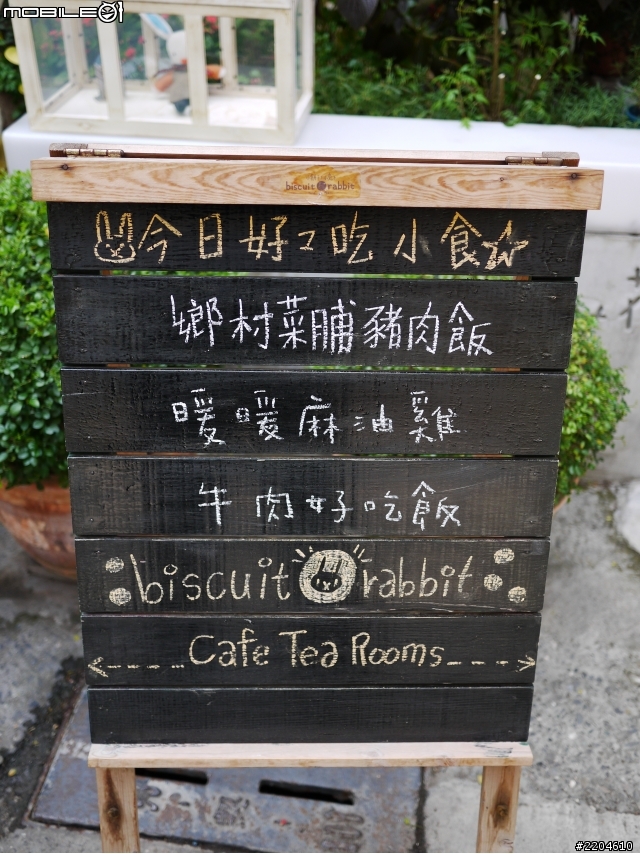 MOBILE01
biscuit rabbit
今日好好吃小食
鄉村菜脯豬肉飯
暖暖麻油雞
牛肉好吃飯
biscuit rabbit
Cafe Tea Rooms
#2204610